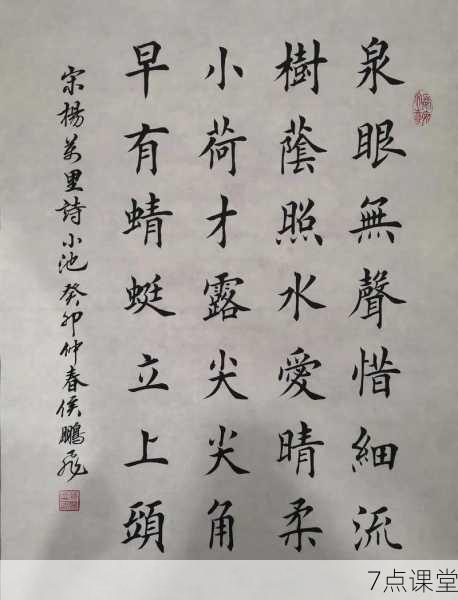 泉眼無聲惜細流
樹蔭照水愛晴柔
小荷才露尖尖角
早有蜻蜓立上頭
宋楊萬里詩小池癸卯仲春侯鵬飛
7点课堂